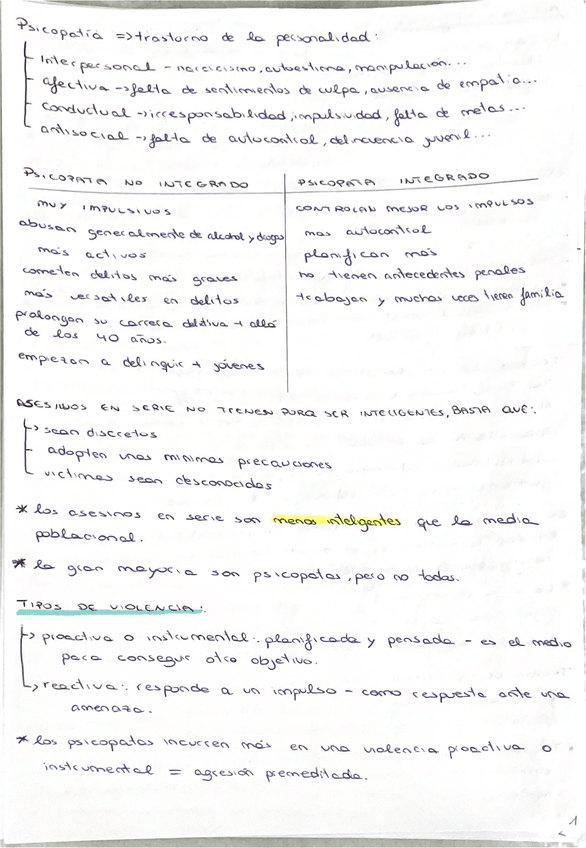 Psicopatía => trastorno de la personalidad:
Interpersonal - narcicismo, autoestima, manipulación...
afectiva -> falta de sentimientos de culpa, ausencia de empatia...
conductual -> irresponsabilidad, impulsividad, falta de metas...
antisocial -> falta de autocontrol, delincuencia juvenil...
PSICOPATA NO INTEGRADO
MUY IMPULSIVOS
abusan generalmente de alcohol y drogas
más activos
cometen delitos más graves
más versatiles en delitos
prolongan su carrera delitiva + allá
de los 40 años.
empiezan a delinquir + jóvenes
PSICOPATA INTEGRADO
CONTROLAN MEJOR LOS IMPULSOS
mas autocontrol
planifican más
no tienen antecedentes penales
trabajan y muchas veces tienen familia
ASESINOS EN SERIE NO TIENEN PORQ SER INTELIGENTES, BASTA QUE:
-> sean discretos
adopten unas minimas precauciones
victimas sean desconocidas
* los asesinos en serie son menos inteligentes que la media
poblacional.
* la gran mayoria son psicopatas, pero no todas.
TIPOS DE VIOLENCIA:
-> proactiva o instrumental: planificada y pensada - es el medio
para conseguir otro objetivo.
-> reactiva: responde a un impulso - como respuesta ante una
amenaza.
* los psicopatas incurren más en una violencia proactiva o
instrumental = agresión premeditada.
1